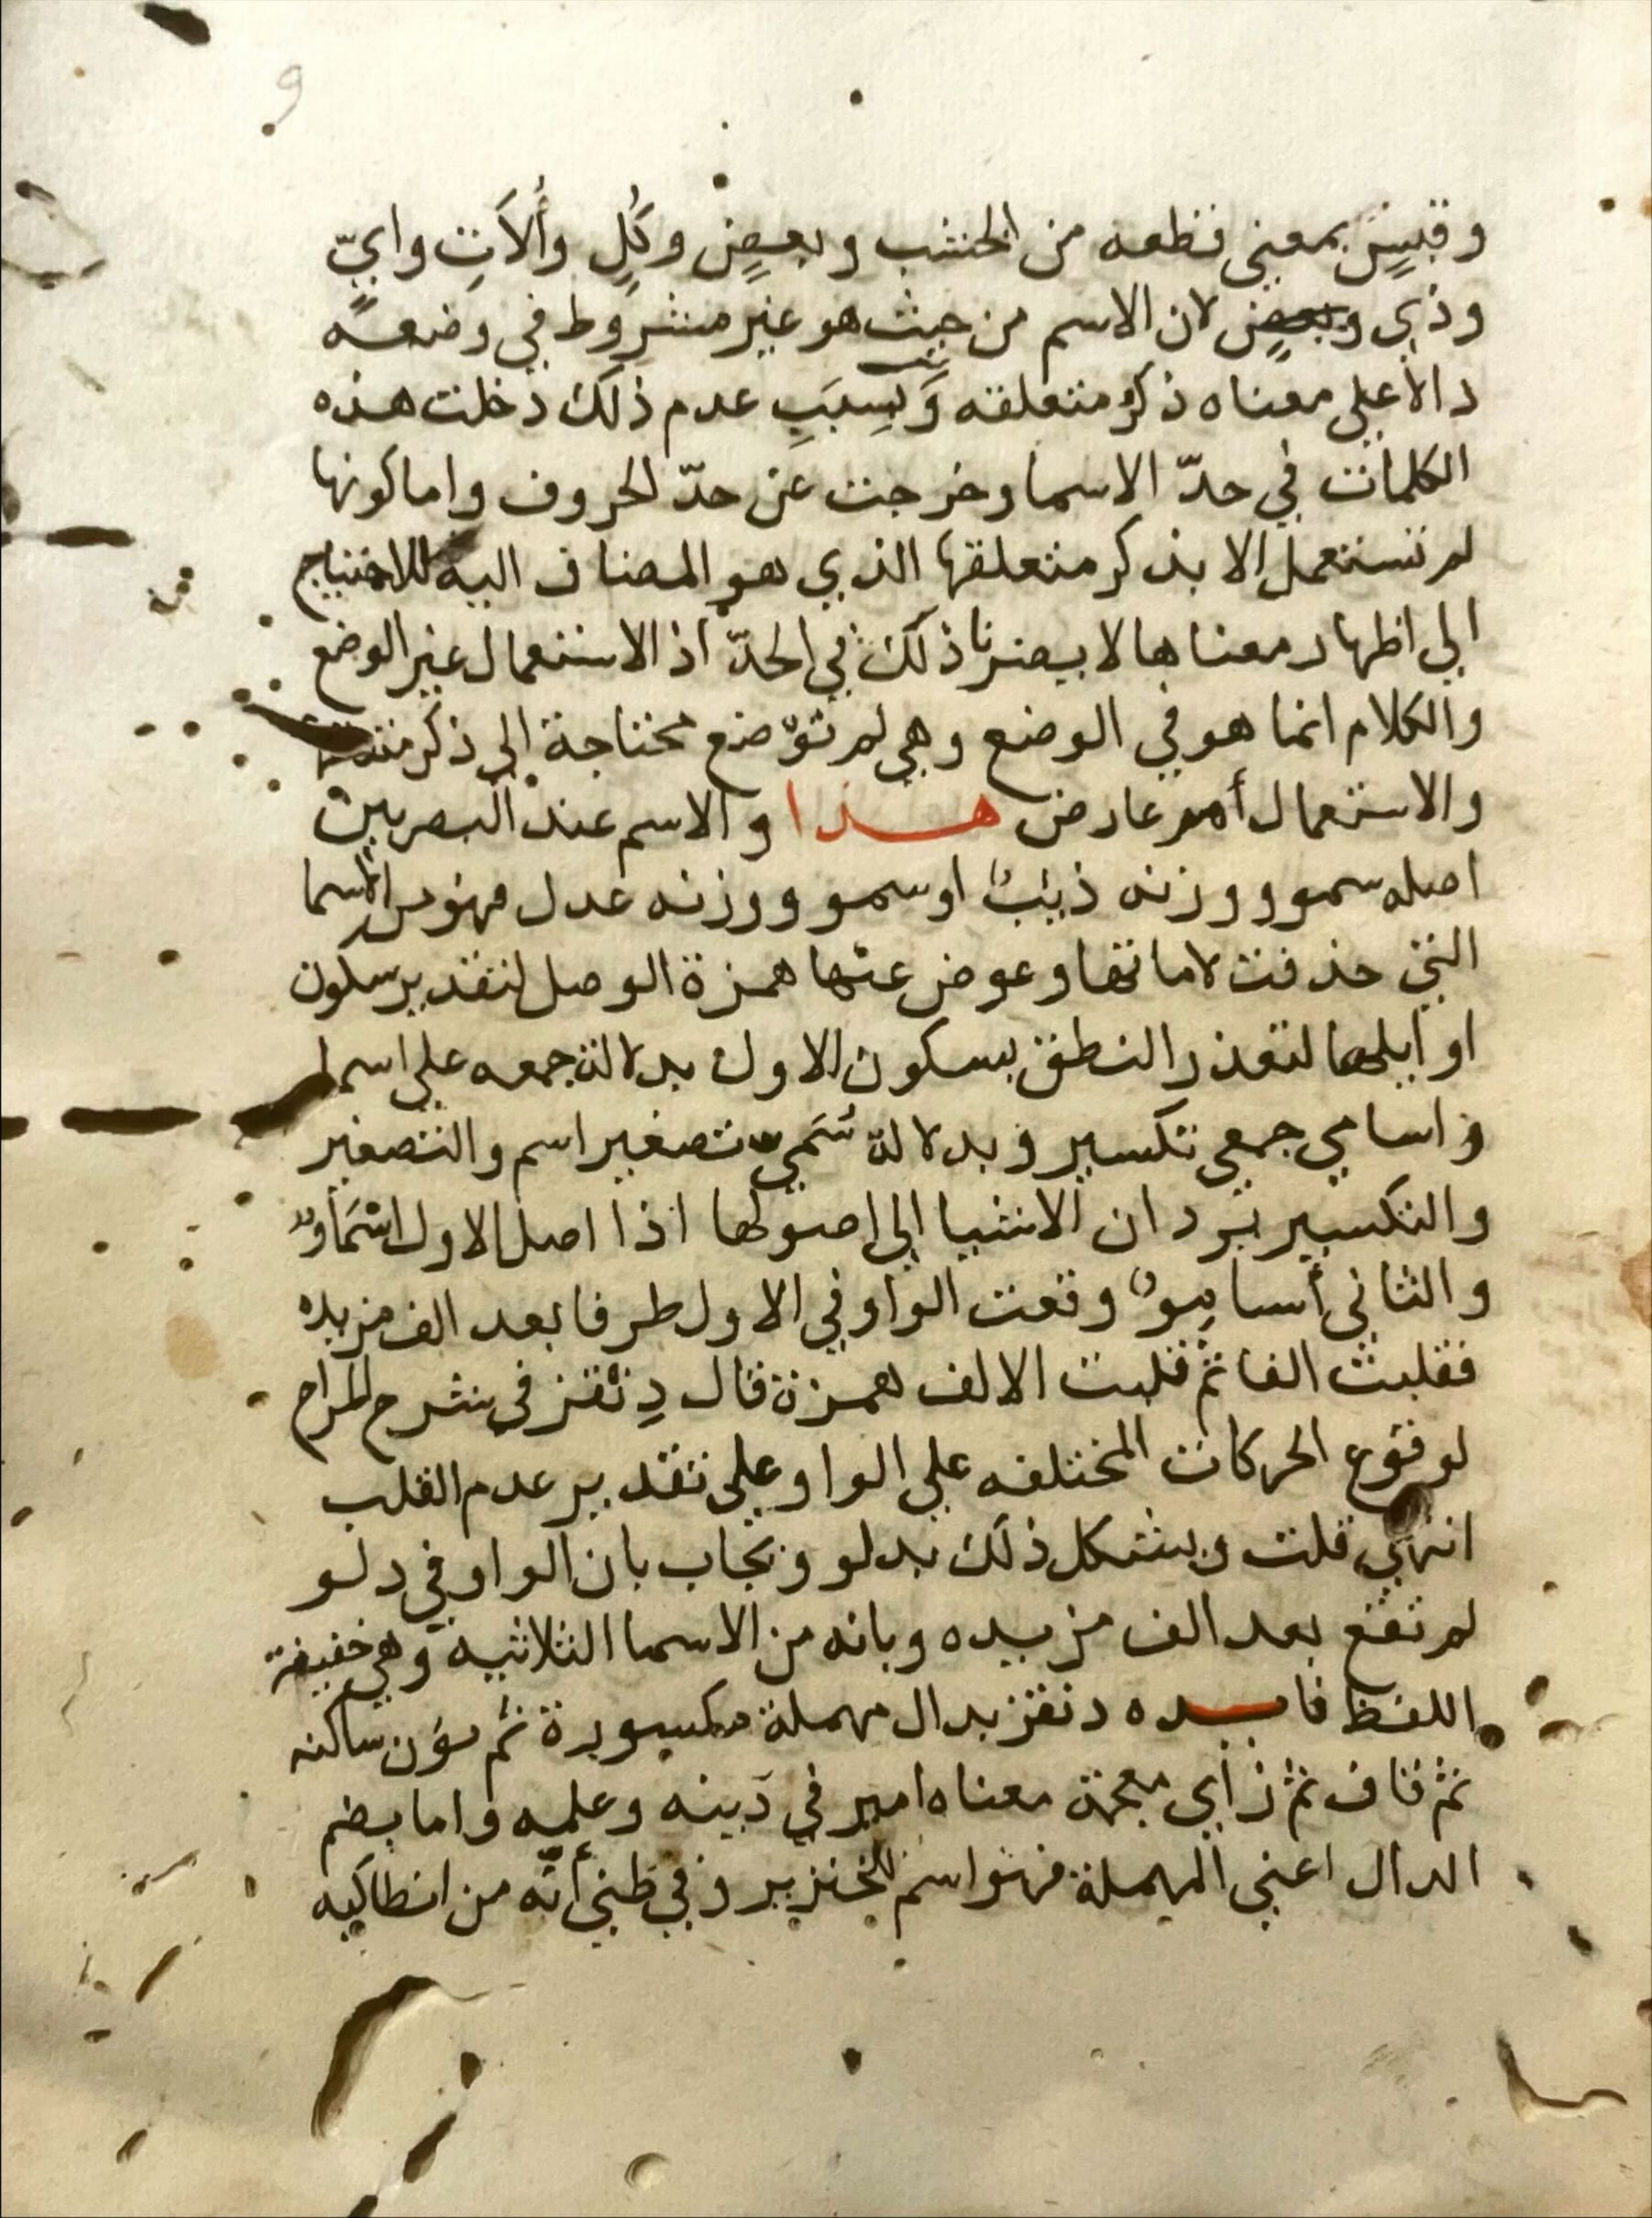 و
وقبيص بمعنى قطعه من الخشب وبعضٍ وكُلٍ وأُلاَتِ وايّ
وذي وبعضٍ لان الاسم من حيث هو غير مشروط في وضعه
دالا على معناه ذكر متعلقه وَبسببَ عدم ذلك دخلت هذه
الكلمات في حدّ الاسما وخرجت عن حدّ الحروف واما كونها
لم تستعمل الا بذكر متعلقها الذي هو المضاف اليه للاحتياج
الي اظهار معناها لا يضرنا ذلك في الحدّ اذ الاستعمال غير الوضع
والكلام انما هو في الوضع وهي لم توضع محتاجة الي ذكر
والاستعمال أمر عارض هذا والاسم عند البصريين
اصله سمو ووزنه ذيب او سمو ووزنه عدل فهو من الاسما
التي حذفت لاماتها وعوض عنها همزة الوصل لتقدير سكون
اوايلها لتعذر النطق بسكون الاول بدلالة جمعه علي اسما
واسامي جمعي تكسير وبدلالة سُمَيّ تصغير اسم والتصغير
والتكسير يردان الاشيا الي اصولها اذا اصل الاول اسْمَاوٌ
والثاني أسامِوُ وقعت الواو في الاول طرفا بعد الف مزيده
فقلبت الفا ثم قلبت الالف همزة قال دِنقز في شرح المراح
لوقوع الحركات المختلفه علي الواو علي تقدير عدم القلب
انتهي قلت ويشكل ذلك بدلو ويجاب بان الواو في دلو
لم تقع بعد الف مزيده وبانه من الاسما الثلاثيه وهي خفيفة
اللفظ فايده دنقز بدال مهملة مكسورة ثم نون ساكنه
ثم قاف ثم زاي معجمة معناه امير في دينه وعلمه واما بضم
الدال اعني المهملة فهو اسم للخنزير وفي ظني أنّه من انطاكيه